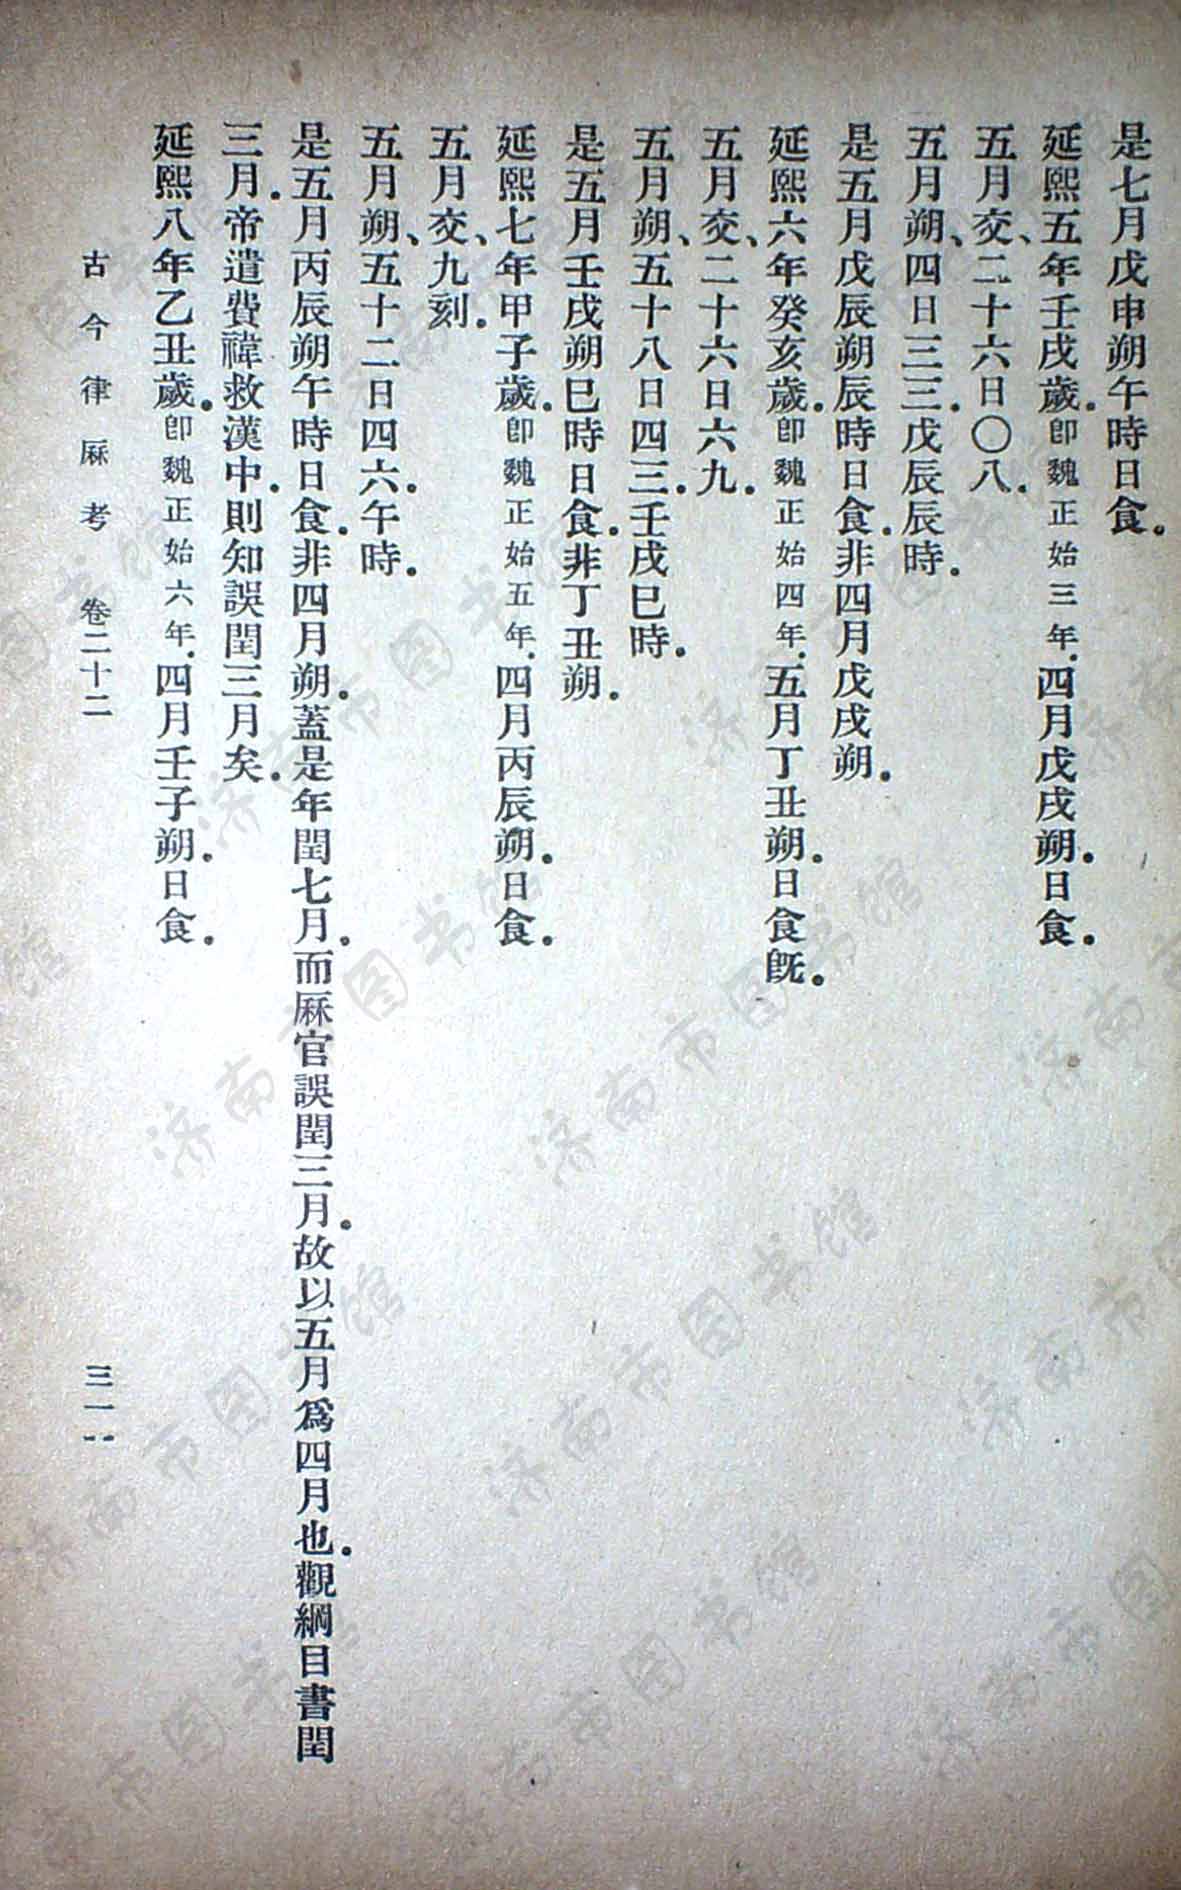 是七月戊申朔午時日食.
延熙五年壬戌歲.卽魏正始三年.四月戊戌朔.日食.
五月交、二十六日〇八.
五月朔、四日三三.戊辰辰時.
是五月戊辰朔辰時日食.非四月戊戌朔.
延熙六年癸亥歲.卽魏正始四年.五月丁丑朔.日食旣.
五月交、二十六日六九.
五月朔、五十八日四三.壬戌巳時.
是五月壬戌朔巳時日食.非丁丑朔.
延熙七年甲子歲.卽魏正始五年.四月丙辰朔.日食.
五月交、九刻.
五月朔、五十二日四六.午時.
是五月丙辰朔午時日食.非四月朔.蓋是年閏七月.而厤官誤閏三月.故以五月爲四月也.觀綱目書閏
三月.帝遣費禕救漢中.則知誤閏三月矣.
延熙八年乙丑歲.卽魏正始六年.四月壬子朔.日食.
古今律厤考 卷二十二 三一一
济南市图书馆